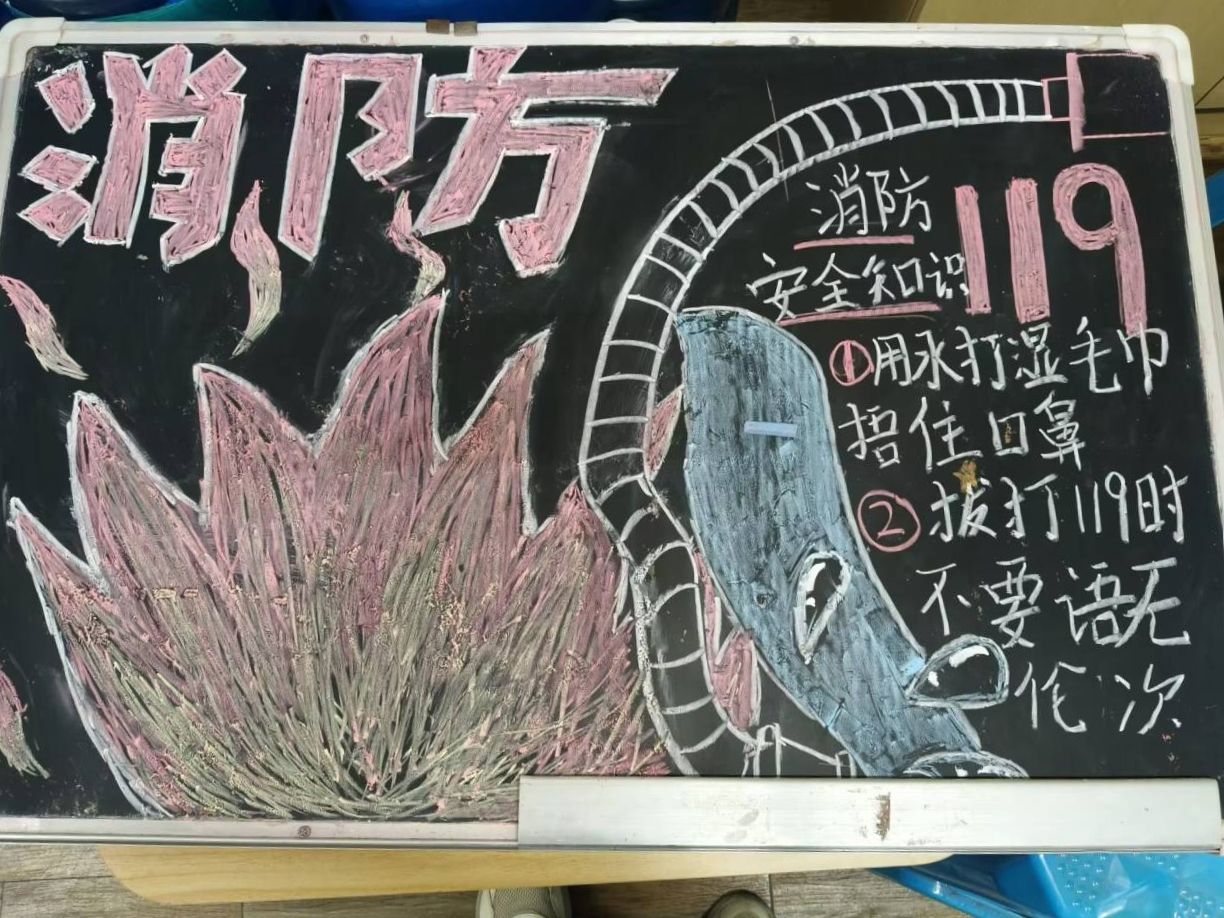 消防
消防 119
安全知识
①用水打湿毛巾
捂住口鼻
②拔打119时
不要语无
伦次